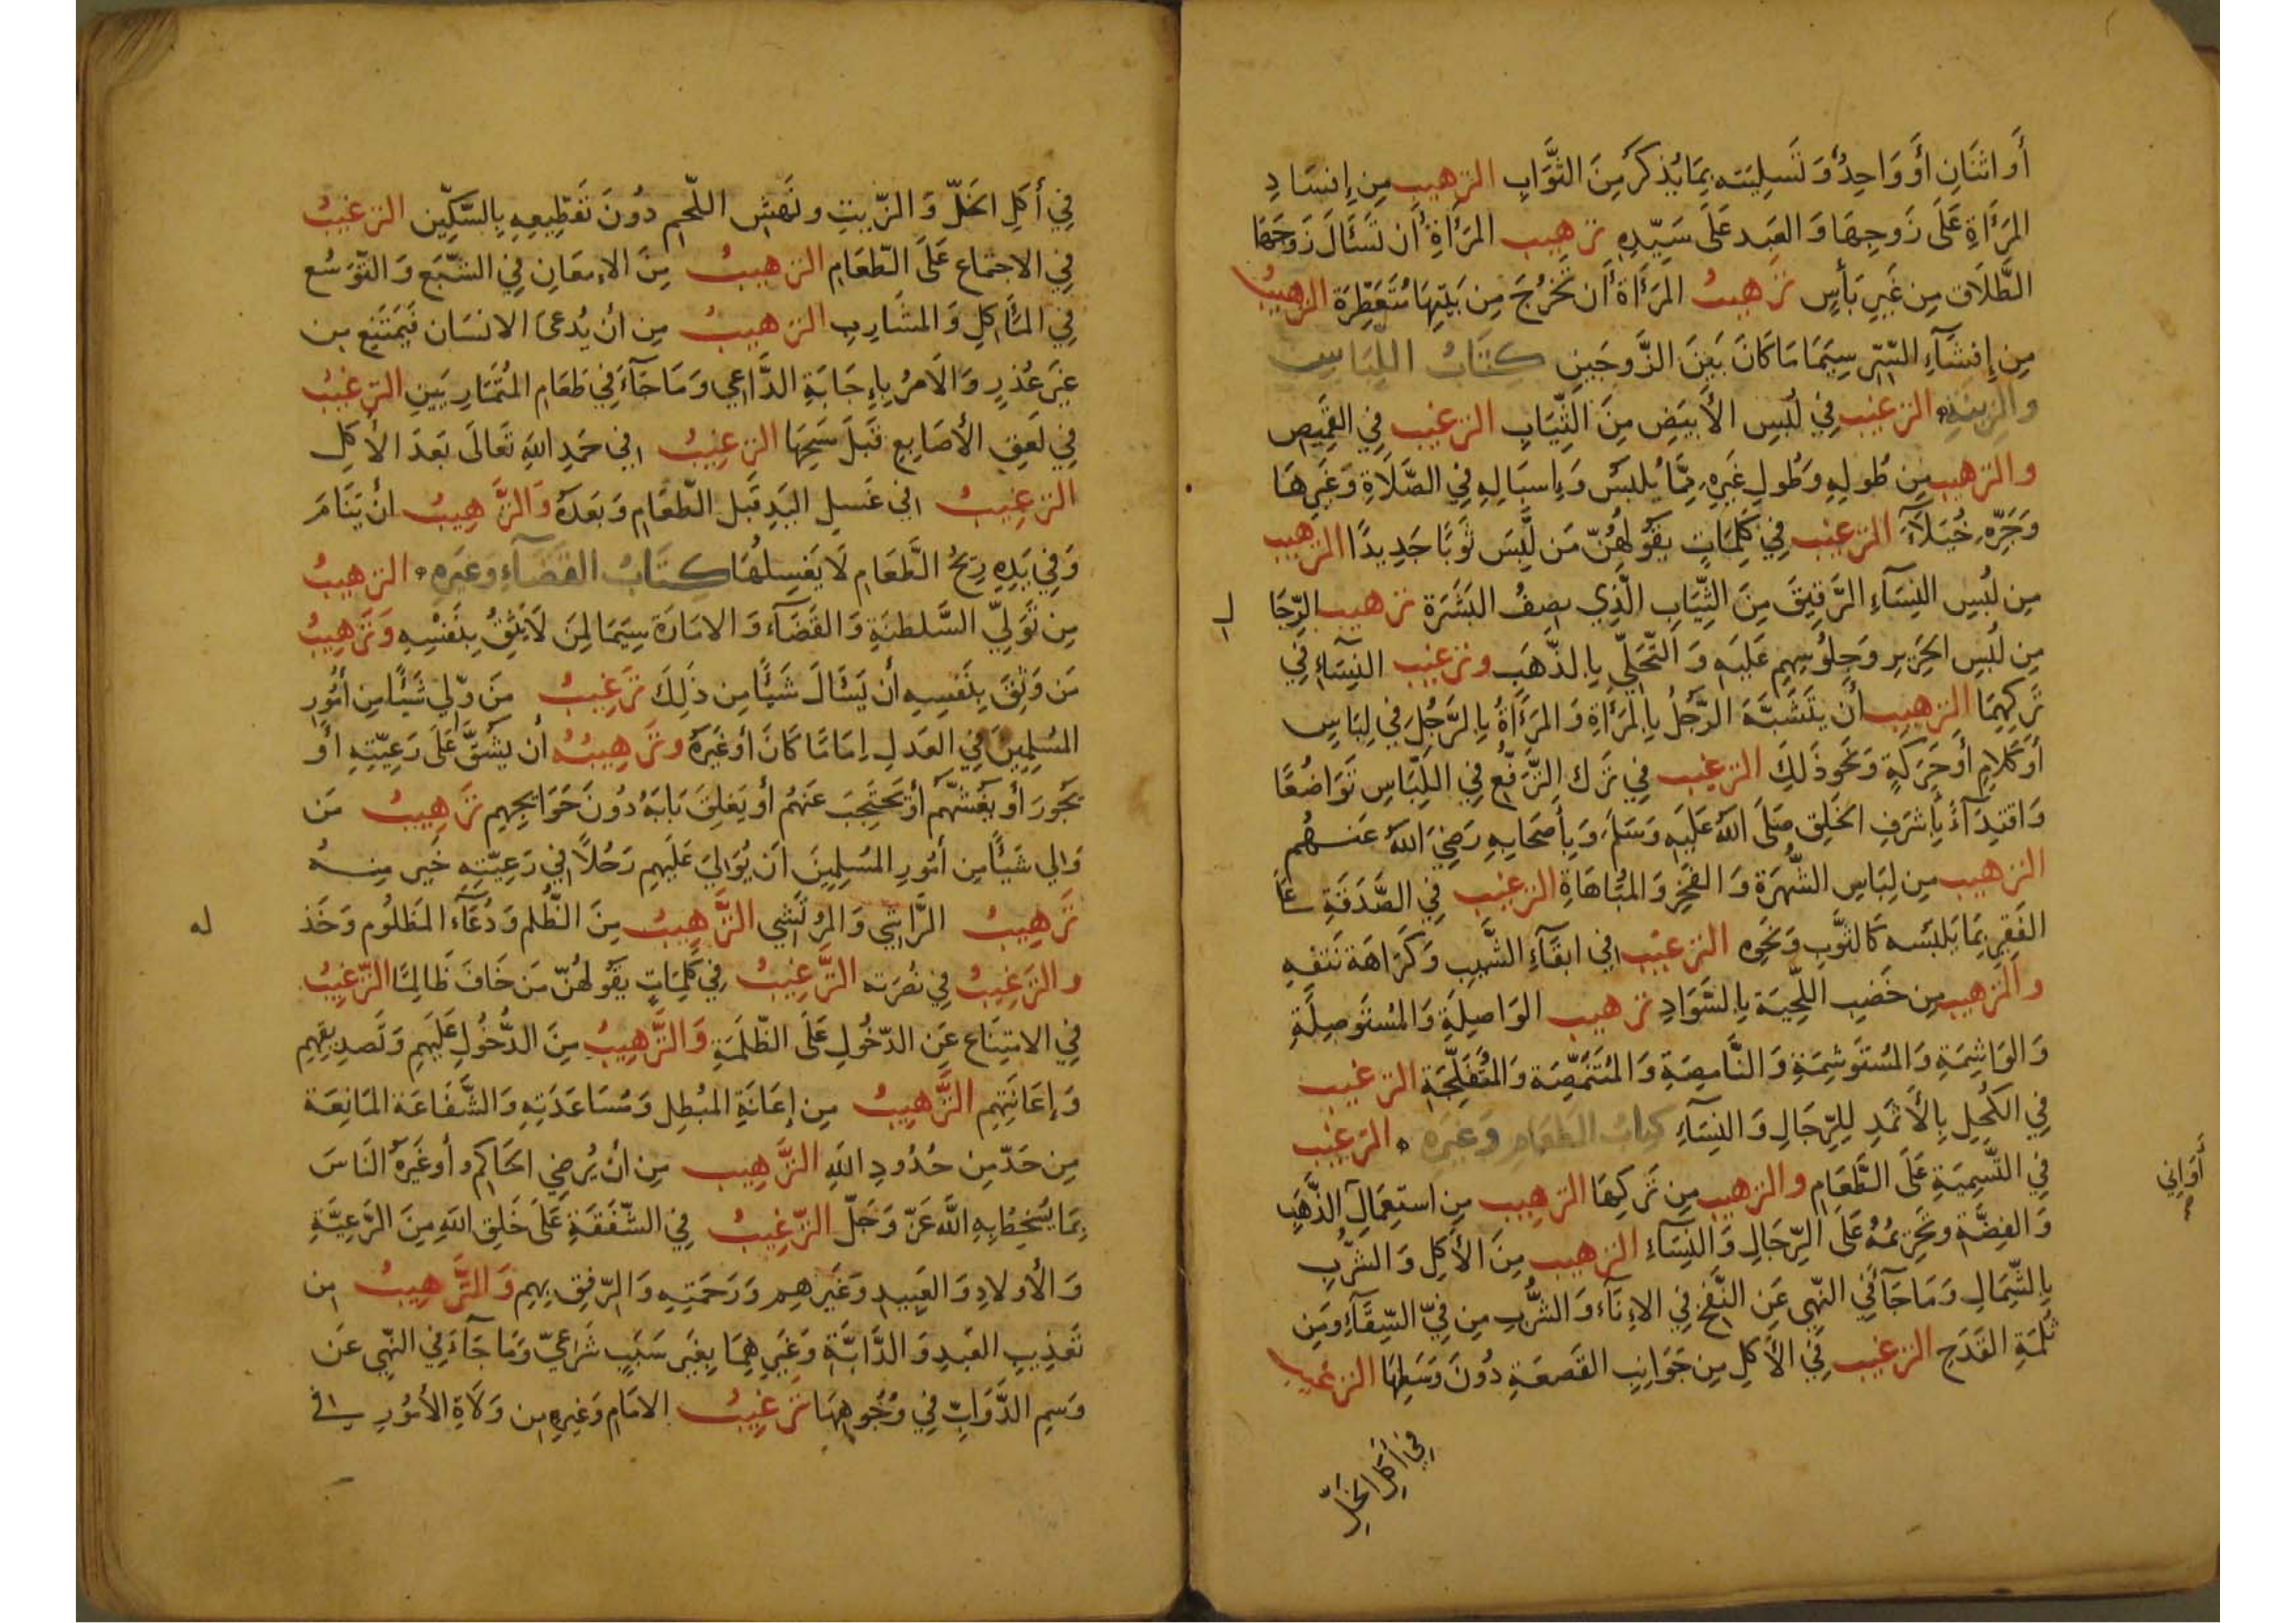 أَو اثنَانِ أَو وَاحِدٌ وَتَسلِيَتِه بِمَا يُذكَرُ مِنَ الثَّوَابِ الترهيب مِن إِفسَادِ
المَرأَةِ عَلَى زَوجِهَا وَالعَبد عَلَى سَيّدِهِ ترهيب المَرأَةِ أَن تَسئَالَ زَوجَهَا
الطَّلَاقَ مِن غَيرِ بَأسٍ ترهيبُ المَرأَة أَن تَخرُجَ مِن بَيتِهَا مُتَعَطِّرَة الترهيبُ
مِن إِفشَآءِ السِّرّ سِيَمَا مَا كَانَ بَينَ الزَّوجَينِ كِتَابُ اللِبَاسِ
والزِينَةِ الترغيب فِي لُبسِ الأَبيَضِ مِنَ الثِّيَابِ الترغيب فِي القَمِيص
والترهيب مِن طُولِهِ وَطُولِ غَيرِهِ مِمَّا يُلبَسُ وَإِسبَالِهِ فِي الصَّلَاةِ وَغَيرِهَا
وَجَرِّهِ خُيَلَآءَ الترغيب فِي كَلِمَاتٍ يَقُولُهُنّ مَن لَبِسَ ثَوبًا جَدِيدًا الترهيب
مِن لُبسِ النِسَآءِ الرَّقِيقَ مِنَ الثِّيَابِ الَّذِي يصِفُ البَشَرَة ترهيب الرِّجَا لِ
مِن لُبسِ الحَرِيرِ وَجِلُوسِهِم عَلَيهِ وَالتَّحَلِّي بِالذَّهَبِ وترغيب النِسَآءِ فِي
تَركِهِمَا الترهيب أَن يتَشَبَّهَ الرَّجُلُ بِالمَرأَةِ وَالمَرأَةُ بِالرَّجُلِ فِي لِبَاسٍ
أَو كَلامٍ أَو حَرَكَةٍ وَنَحوِ ذَلِكَ الترغيب فِي تَرك التَّرَفُّع فِي اللِّبَاسِ تَوَاضُعًا
وَاقتِدَآءً بِأَشرَفِ الخَلقِ صَلَى اللهُ عَلَيهِ وَسَلمَ وَبِأَصحَابِهِ رَضِيَ اللهُ عَنهُم
الترهيب مِن لِبَاسِ الشُّهرَة وَالفَخرِ وَالمُبَاهَاةِ الترغيب فِي الصَّدَقَةِ عَلَى
الفَقِيرِ بِمَا يَلبَسه كَالثَّوبِ وَنَحوِه الترغيب فِي ابقَآءِ الشَّيبِ وَكَرَاهَة نَتفِهِ
والترهيب مِن خَضبِ اللِّحيَة بِالسَّوَادِ ترهيب الوَاصِلَةِ وَالمُستَوصِلَةِ
وَالوَاشِمَةِ وَالمُستَوشِمَةِ وَالنَّامِصَةِ وَالمُتَنَمِّصَة وَالمُتَفَلِّجَةِ الترغيب
فِي الكُحلِ بِالأَثمَدِ لِلرِّجَالِ وَالنِسَآءِ كتابُ الطَعَامِ وَغَيرِهِ الترغيب
فِي التَّسمِيَةِ عَلَى الطَّعَامِ والترهيب مِن تَركِهَا الترهيب مِن استِعمَالِ أَوَانِي الذَّهَبِ
وَالفِضَّة وتَحرِيمُهُ عَلَى الرِّجَالِ وَالنِّسَآءِ الترهيب مِنَ الأَكلِ وَالشُّربِ
بِالشِّمَالِ وَمَا جَآءَ فِي النّهي عَن النَّفخ فِي الإِنَآءِ وَالشُّربِ مِن فِيّ السِّقَآءِ وَمِن
ثُلمَةِ القَدَحِ الترغيب فِي الأَكلِ مِن جَوَانِبِ القَصعَةِ دُونَ وَسَطِهَا الترغيب
فِي أَكلِ الخَلِّ
فِي أَكلِ الخَلّ وَالزّيتِ ونَهشِ اللّحمِ دُونَ تَقطِيعِهِ بِالسَّكِّين الترغيبُ
فِي الاجتماعِ عَلَى الطّعَامِ الترهيبُ مِنَ الإِمعَانِ فِي الشّبَع وَالتّوَسُع
فِي المَآكِلِ وَالمشَارِبِ الترهيبُ مِن أَن يُدعَى الانسَان فَيَمتَنِع مِن
غَيرِ عُذرٍ وَالأَمرُ بِإِجَابَةِ الدَّاعِي وَمَا جَآءَ فِي طَعَامِ المُتمَارِيَينِ الترغيبُ
فِي لَعقِ الأَصَابِعِ قَبلَ مَسحِهَا الترغِيبُ فِي حَمدِ اللهِ تَعَالَى بَعدَ الأَكلِ
الترغِيبُ فِي غَسلِ اليَدِ قَبل الطّعَامِ وَبَعدَهُ وَالتَّرهِيبُ أَن يَنَامَ
وَفِي يَدِهِ رِيحُ الطَّعَامِ لَا يَغسِلُهَا كِتَابُ القَضَآءِ وَغَيرِهِ الترهيبُ
مِن تَوَلِّيّ السَّلطنَةِ وَالقَضَآءِ وَالامَارَة سِيَمَا لِمَن لَا يَثِقُ بِنَفسِهِ وَتَرهِيبُ
مَن وَثِقَ بِنَفسِهِ أَن يَسئَالَ شَيئًا مِن ذَلِكَ تَرغِيبُ مَن وَلّي شَيئًا مِن أُمُورِ
المُسلِمِينَ فِي العَدلِ إِمَامًا كَانَ أَو غَيرَهُ وتَرهِيبُهُ أَن يَشُقَّ عَلَى رَعِيّتِهِ أَو
يَجُورَ أَو يَغُشَّهُم أَو يَحتَجِبَ عَنهُم أَو يَغلِقَ بَابَهُ دُونَ حَوَايِجِهِم تَرهِيبُ مَن
وَلِي شَيئًا مِن أُمُورِ المُسلِمِينَ أَن يُوَلِّيَ عَلَيهِم رَجُلًا فِي رَعِيّتِهِ خَير مِنهُ
تَرهِيبُ الرَّاشِي وَالمُرتَشِي التَّرهِيبُ مِنَ الظُّلم وَدُعَآءِ المَظلُومِ وَخَذ له
والتَرغِيبُ فِي نُصرَته التَّرغِيبُ فِي كَلِمَاتٍ يَقُولُهُنّ مَن خَافَ ظَالِمًا التّرغِيبُ
فِي الامتِنَاعِ عَن الدّخُولِ عَلَى الظّلَمَةِ وَالتَّرهِيبُ مِنَ الدُّخُولِ عَلَيهِم وَتَصدِيقِهِم
وَإِعَانَتِهِم التَّرهِيبُ مِن إِعَانَةِ المُبطِلِ وَمُسَاعَدَتِهِ وَالشَّفَاعَة المَانِعَة
مِن حَدّ مِن حُدُودِ اللهِ التَّرهِيب مِن أَن يُرضِيَ الحَاكِم أَو غَيرُهُ النَاسَ
بِمَا يُسخِطُ بِهِ اللهَ عَزّ وَجَلّ التَّرغِيبُ فِي الشّفَقَةِ عَلَى خَلقِ اللهِ مِنَ الرَّعِيَّةِ
وَالأَولَادِ وَالعَبِيدِ وَغَيرهِم وَرَحمَتِهِ وَالرّفقِ بِهِم وَالتَّرهِيبُ مِن
تَعذِيبِ العَبدِ وَالدَّابَّةِ وَغَيرِهِمَا بِغَير سَبَبٍ شَرعِيّ وَمَا جَآءَ فِي النّهي عَن
وَسمِ الدَّوَابّ فِي وُجُوهِهَا تَرغِيبُ الامَام وَغَيرِهِ مِن وَلَاةِ الأُمُورِ فِي